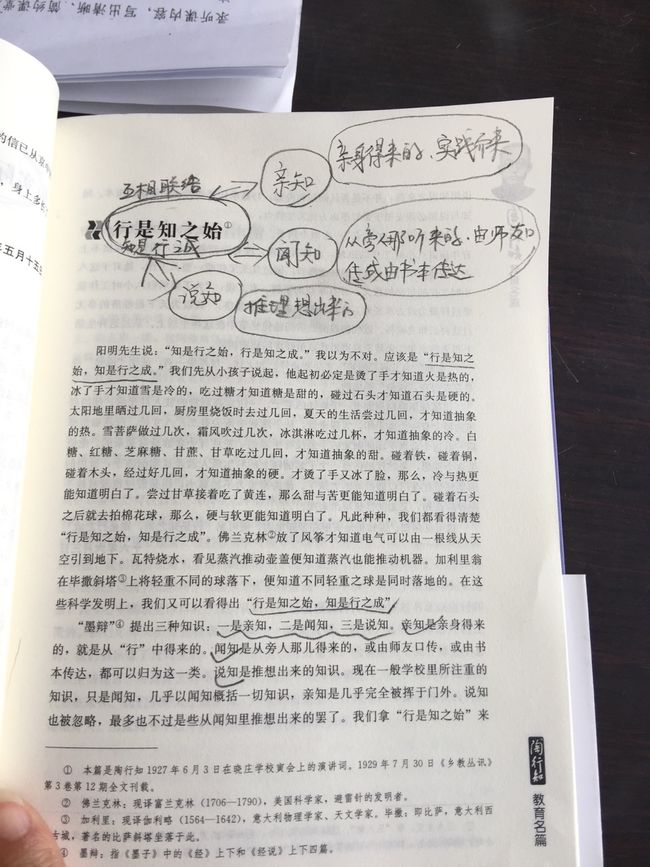 录听课内容，写出清晰、简约课堂
的信已从
，身上多
年五月十五
亲知
亲身得来的、实践而来
互相联络
行是知之始①
知是行之成
闻知
从旁人那听来的、由师友口
传或由书本传达
说知
推理想出来的
阳明先生说：“知是行之始，行是知之成。”我以为不对。应该是“行是知之
始，知是行之成。”我们先从小孩子说起，他起初必定是烫了手才知道火是热的，
冰了手才知道雪是冷的，吃过糖才知道糖是甜的，碰过石头才知道石头是硬的。
太阳地里晒过几回，厨房里烧饭时去过几回，夏天的生活尝过几回，才知道抽象
的热。雪菩萨做过几次，霜风吹过几次，冰淇淋吃过几杯，才知道抽象的冷。白
糖、红糖、芝麻糖、甘蔗、甘草吃过几回，才知道抽象的甜。碰着铁，碰着铜，
碰着木头，经过好几回，才知道抽象的硬。才烫了手又冰了脸，那么，冷与热更
能知道明白了。尝过甘草接着吃了黄连，那么甜与苦更能知道明白了。碰着石头
之后就去拍棉花球，那么，硬与软更能知道明白了。凡此种种，我们都看得清楚
“行是知之始，知是行之成”。佛兰克林②放了风筝才知道电气可以由一根线从天
空引到地下。瓦特烧水，看见蒸汽推动壶盖便知道蒸汽也能推动机器。加利里翁
在毕撒斜塔③上将轻重不同的球落下，便知道不同轻重之球是同时落地的。在这
些科学发明上，我们又可以看得出“行是知之始，知是行之成”
“墨辩”④提出三种知识：一是亲知，二是闻知，三是说知。亲知是亲身得来
的，就是从“行”中得来的。闻知是从旁人那儿得来的，或由师友口传，或由书
本传达，都可以归为这一类。说知是推想出来的知识。现在一般学校里所注重的
知识，只是闻知，几乎以闻知概括一切知识，亲知是几乎完全被挥于门外。说知
也被忽略，最多也不过是些从闻知里推想出来的罢了。我们拿“行是知之始”来
① 本篇是陶行知1927年6月3日在晓庄学校寅会上的演讲词。1929年7月30日《乡教丛讯》
第3卷第12期全文刊载。
② 佛兰克林：现译富兰克林（1706—1790），美国科学家，避雷针的发明者。
③ 加利里：现译伽利略（1564—1642），意大利物理学家、天文学家。毕撒：即比萨，意大利西
古城，著名的比萨斜塔坐落于此。
④ 墨辩：指《墨子》中的《经》上下和《经说》上下四篇。
陶行知
教育名篇